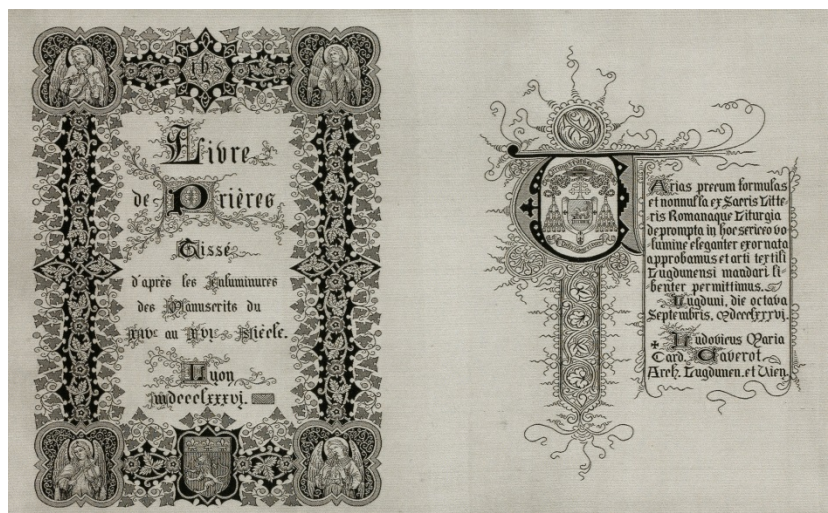 ihs
Livre
de Prières
Tissé
d'après les Enluminures
des Manuscrits du
XIVe au XVIe Siècle.
Lyon
mdccclxxxvj.
Varias precum formulas
et nonnulla ex Sacris Litte-
ris Romanaque Liturgia
deprompta in hoc serico vo-
lumine eleganter exornata
approbamus et arti textili
Lugdunensi mandari li-
benter permittimus.
Lugduni, die octava
Septembris, mdccclxxxvj.
+ Ludovicus Maria
Card. Caverot
Arch. Lugdunen. et Vien.